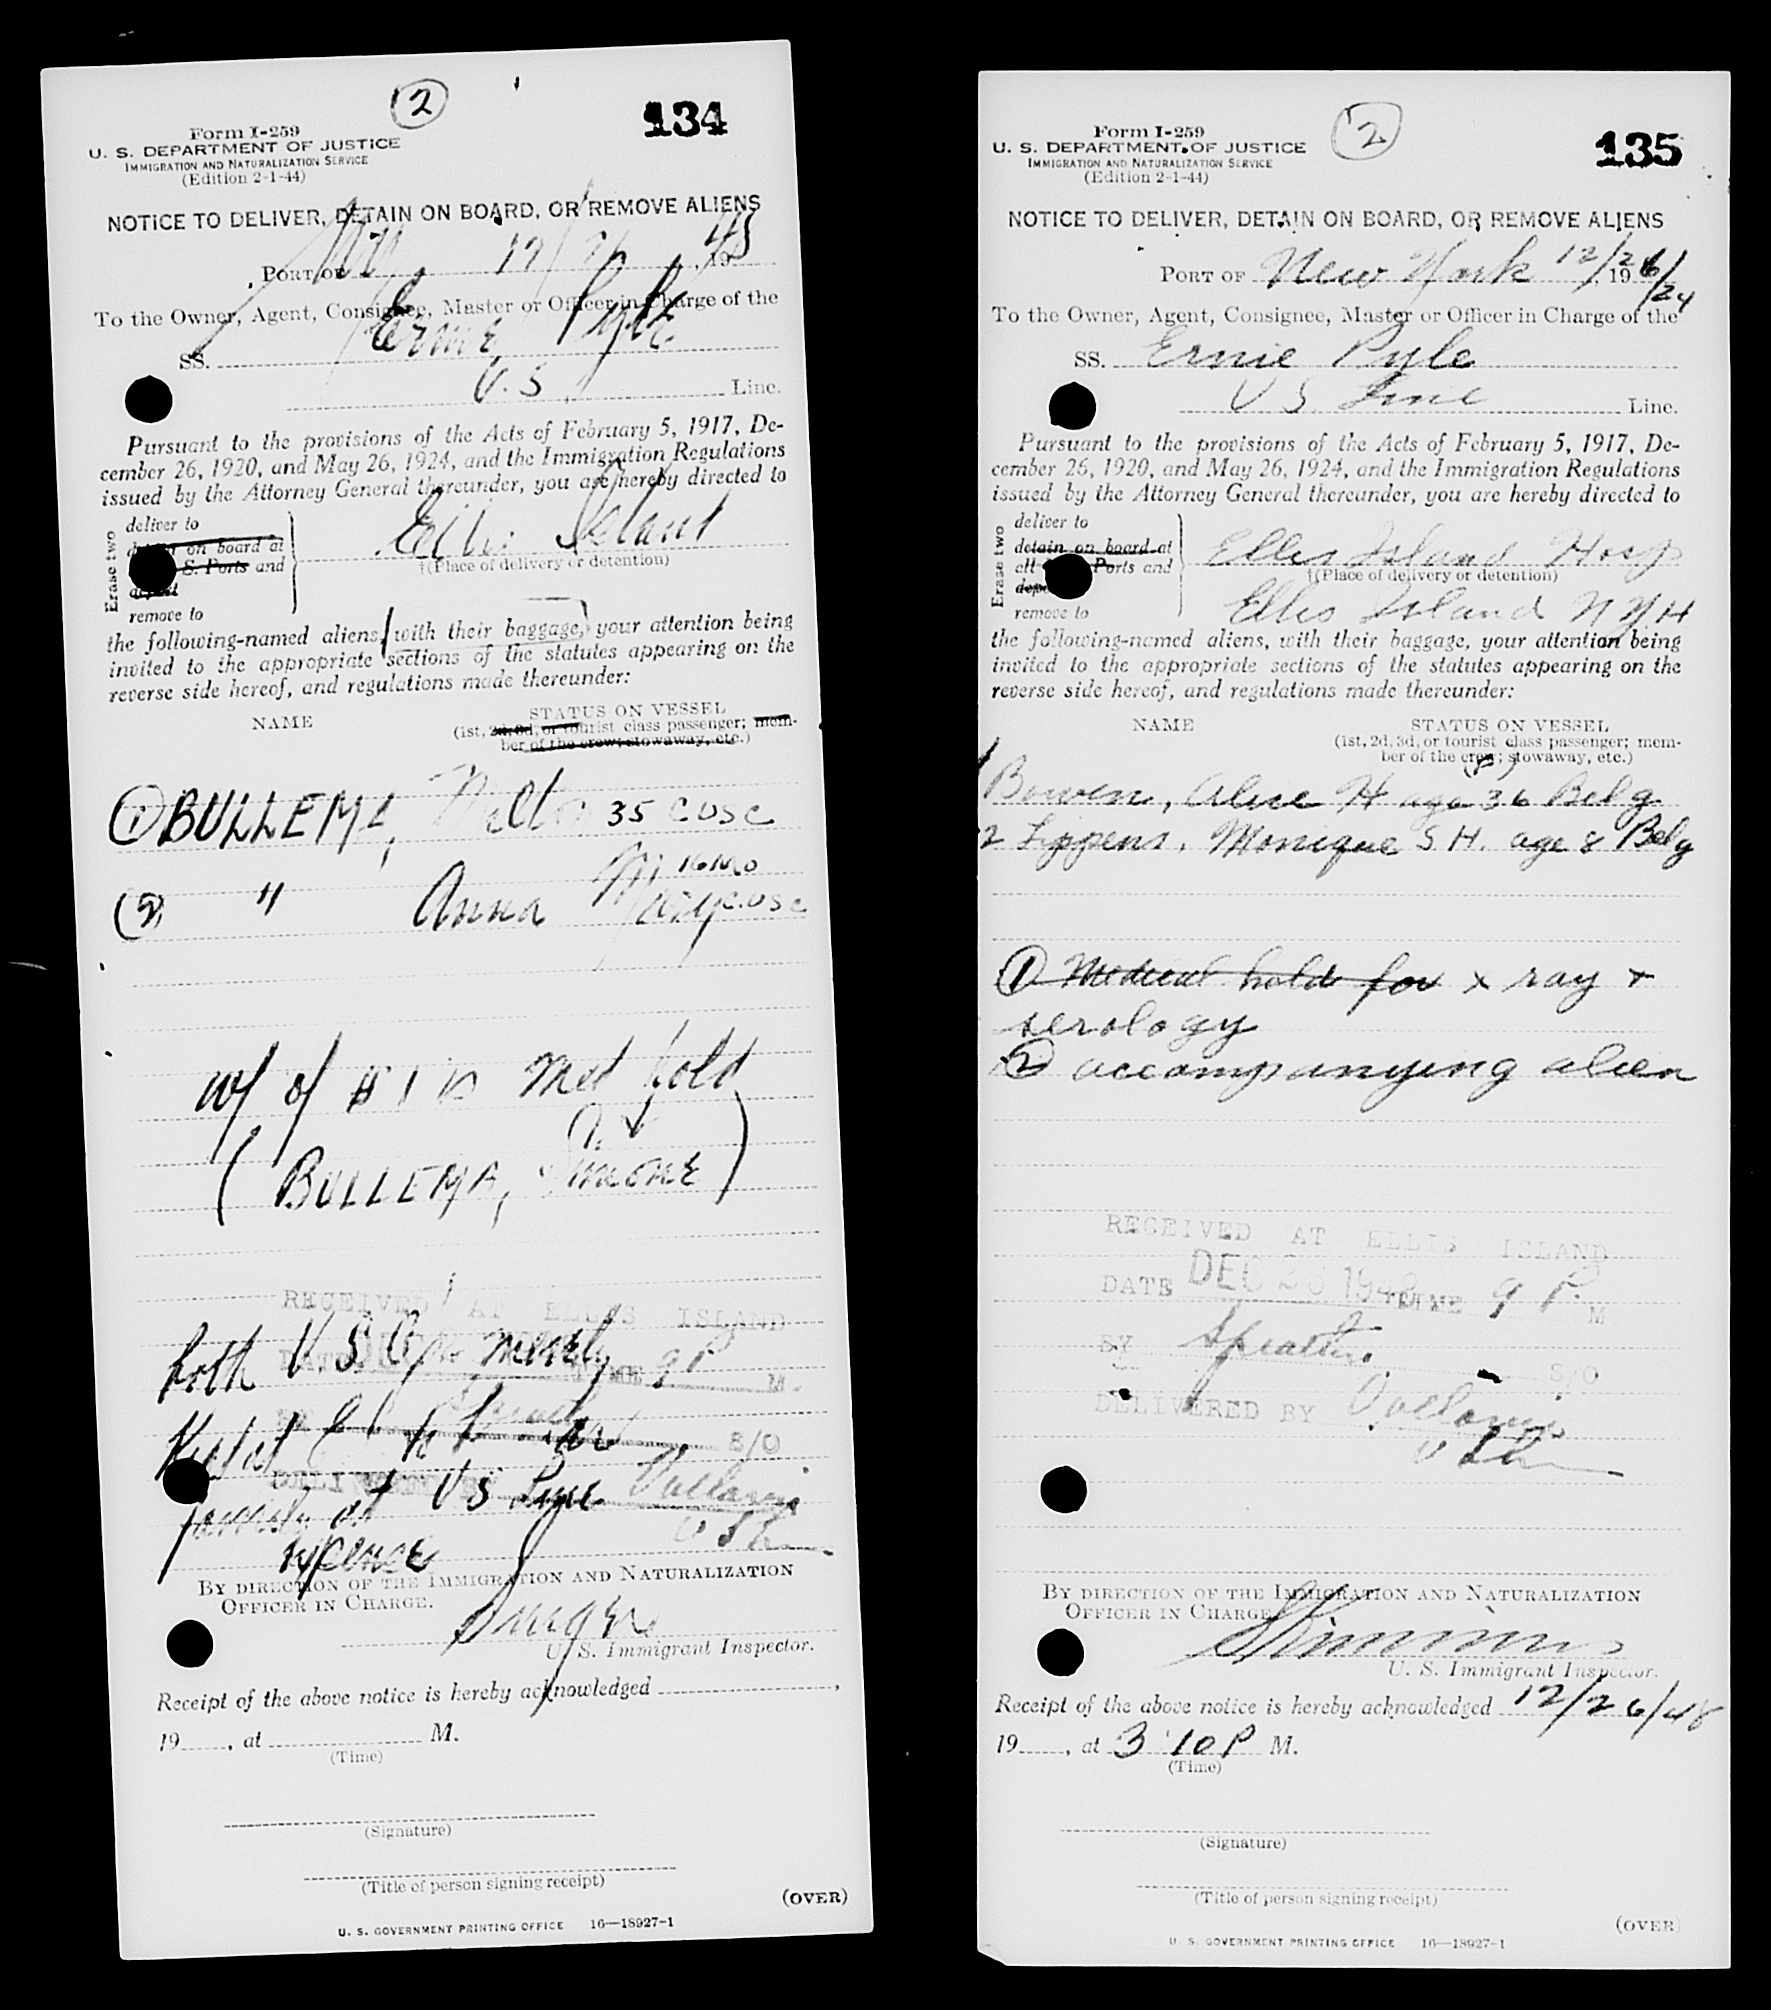 2
134
Form I-259
U. S. DEPARTMENT OF JUSTICE
IMMIGRATION AND NATURALIZATION SERVICE
(Edition 2-1-44)
NOTICE TO DELIVER, DETAIN ON BOARD, OR REMOVE ALIENS
PORT OF NY 12/26, 1948
To the Owner, Agent, Consignee, Master or Officer in Charge of the
SS. Ernie Pyle
U. S. Line.
Pursuant to the provisions of the Acts of February 5, 1917, De-
cember 26, 1920, and May 26, 1924, and the Immigration Regulations
issued by the Attorney General thereunder, you are hereby directed to
Erase two
deliver to
on board at
S. Ports and
deport
remove to
Ellis Island
†(Place of delivery or detention)
the following-named aliens, (with their baggage,) your attention being
invited to the appropriate sections of the statutes appearing on the
reverse side hereof, and regulations made thereunder:
NAME
STATUS ON VESSEL
(1st, 2d, 3d, or tourist class passenger; mem-
ber of the crew; stowaway, etc.)
(1) BULLEMA, 35 C USC
(2) " Anna Mary 16 Mo C. USC
w/ of #1 is Med hold
(BULLEMA, Simone)
RECEIVED AT ELLIS ISLAND
both U S C merely
DATE TIME 9 P M.
Kept at E I to
S/O
DELIVERED BY
family at U S Line
expense
BY DIRECTION OF THE IMMIGRATION AND NATURALIZATION
OFFICER IN CHARGE.
U. S. Immigrant Inspector.
Receipt of the above notice is hereby acknowledged ,
19 , at M.
(Time)
(Signature)
(Title of person signing receipt)
(OVER)
U. S. GOVERNMENT PRINTING OFFICE 16—18927-1
2
135
Form I-259
U. S. DEPARTMENT OF JUSTICE
IMMIGRATION AND NATURALIZATION SERVICE
(Edition 2-1-44)
NOTICE TO DELIVER, DETAIN ON BOARD, OR REMOVE ALIENS
PORT OF New York 12/26/ 19
To the Owner, Agent, Consignee, Master or Officer in Charge of the
SS. Ernie Pyle
U S Line Line.
Pursuant to the provisions of the Acts of February 5, 1917, De-
cember 26, 1920, and May 26, 1924, and the Immigration Regulations
issued by the Attorney General thereunder, you are hereby directed to
Erase two
deliver to
detain on board at
all Ports and
remove to
Ellis Island Hosp
†(Place of delivery or detention)
Ellis Island NYH
the following-named aliens, with their baggage, your attention being
invited to the appropriate sections of the statutes appearing on the
reverse side hereof, and regulations made thereunder:
NAME
STATUS ON VESSEL
(1st, 2d, 3d, or tourist class passenger; mem-
ber of the crew; stowaway, etc.)
1 Bowen, Alice H age 36 Belg
2 Lippens, Monique S H. age 8 Belg
(1) Medical hold for x ray +
serology
(2) accompanying alien
RECEIVED AT ELLIS ISLAND
DATE DEC 26 1948 TIME 9 P. M
BY
S/O
DELIVERED BY
BY DIRECTION OF THE IMMIGRATION AND NATURALIZATION
OFFICER IN CHARGE.
U. S. Immigrant Inspector.
Receipt of the above notice is hereby acknowledged 12/26/48
19 , at 3:10 P M.
(Time)
(Signature)
(Title of person signing receipt)
(OVER)
U. S. GOVERNMENT PRINTING OFFICE 16—18927-1